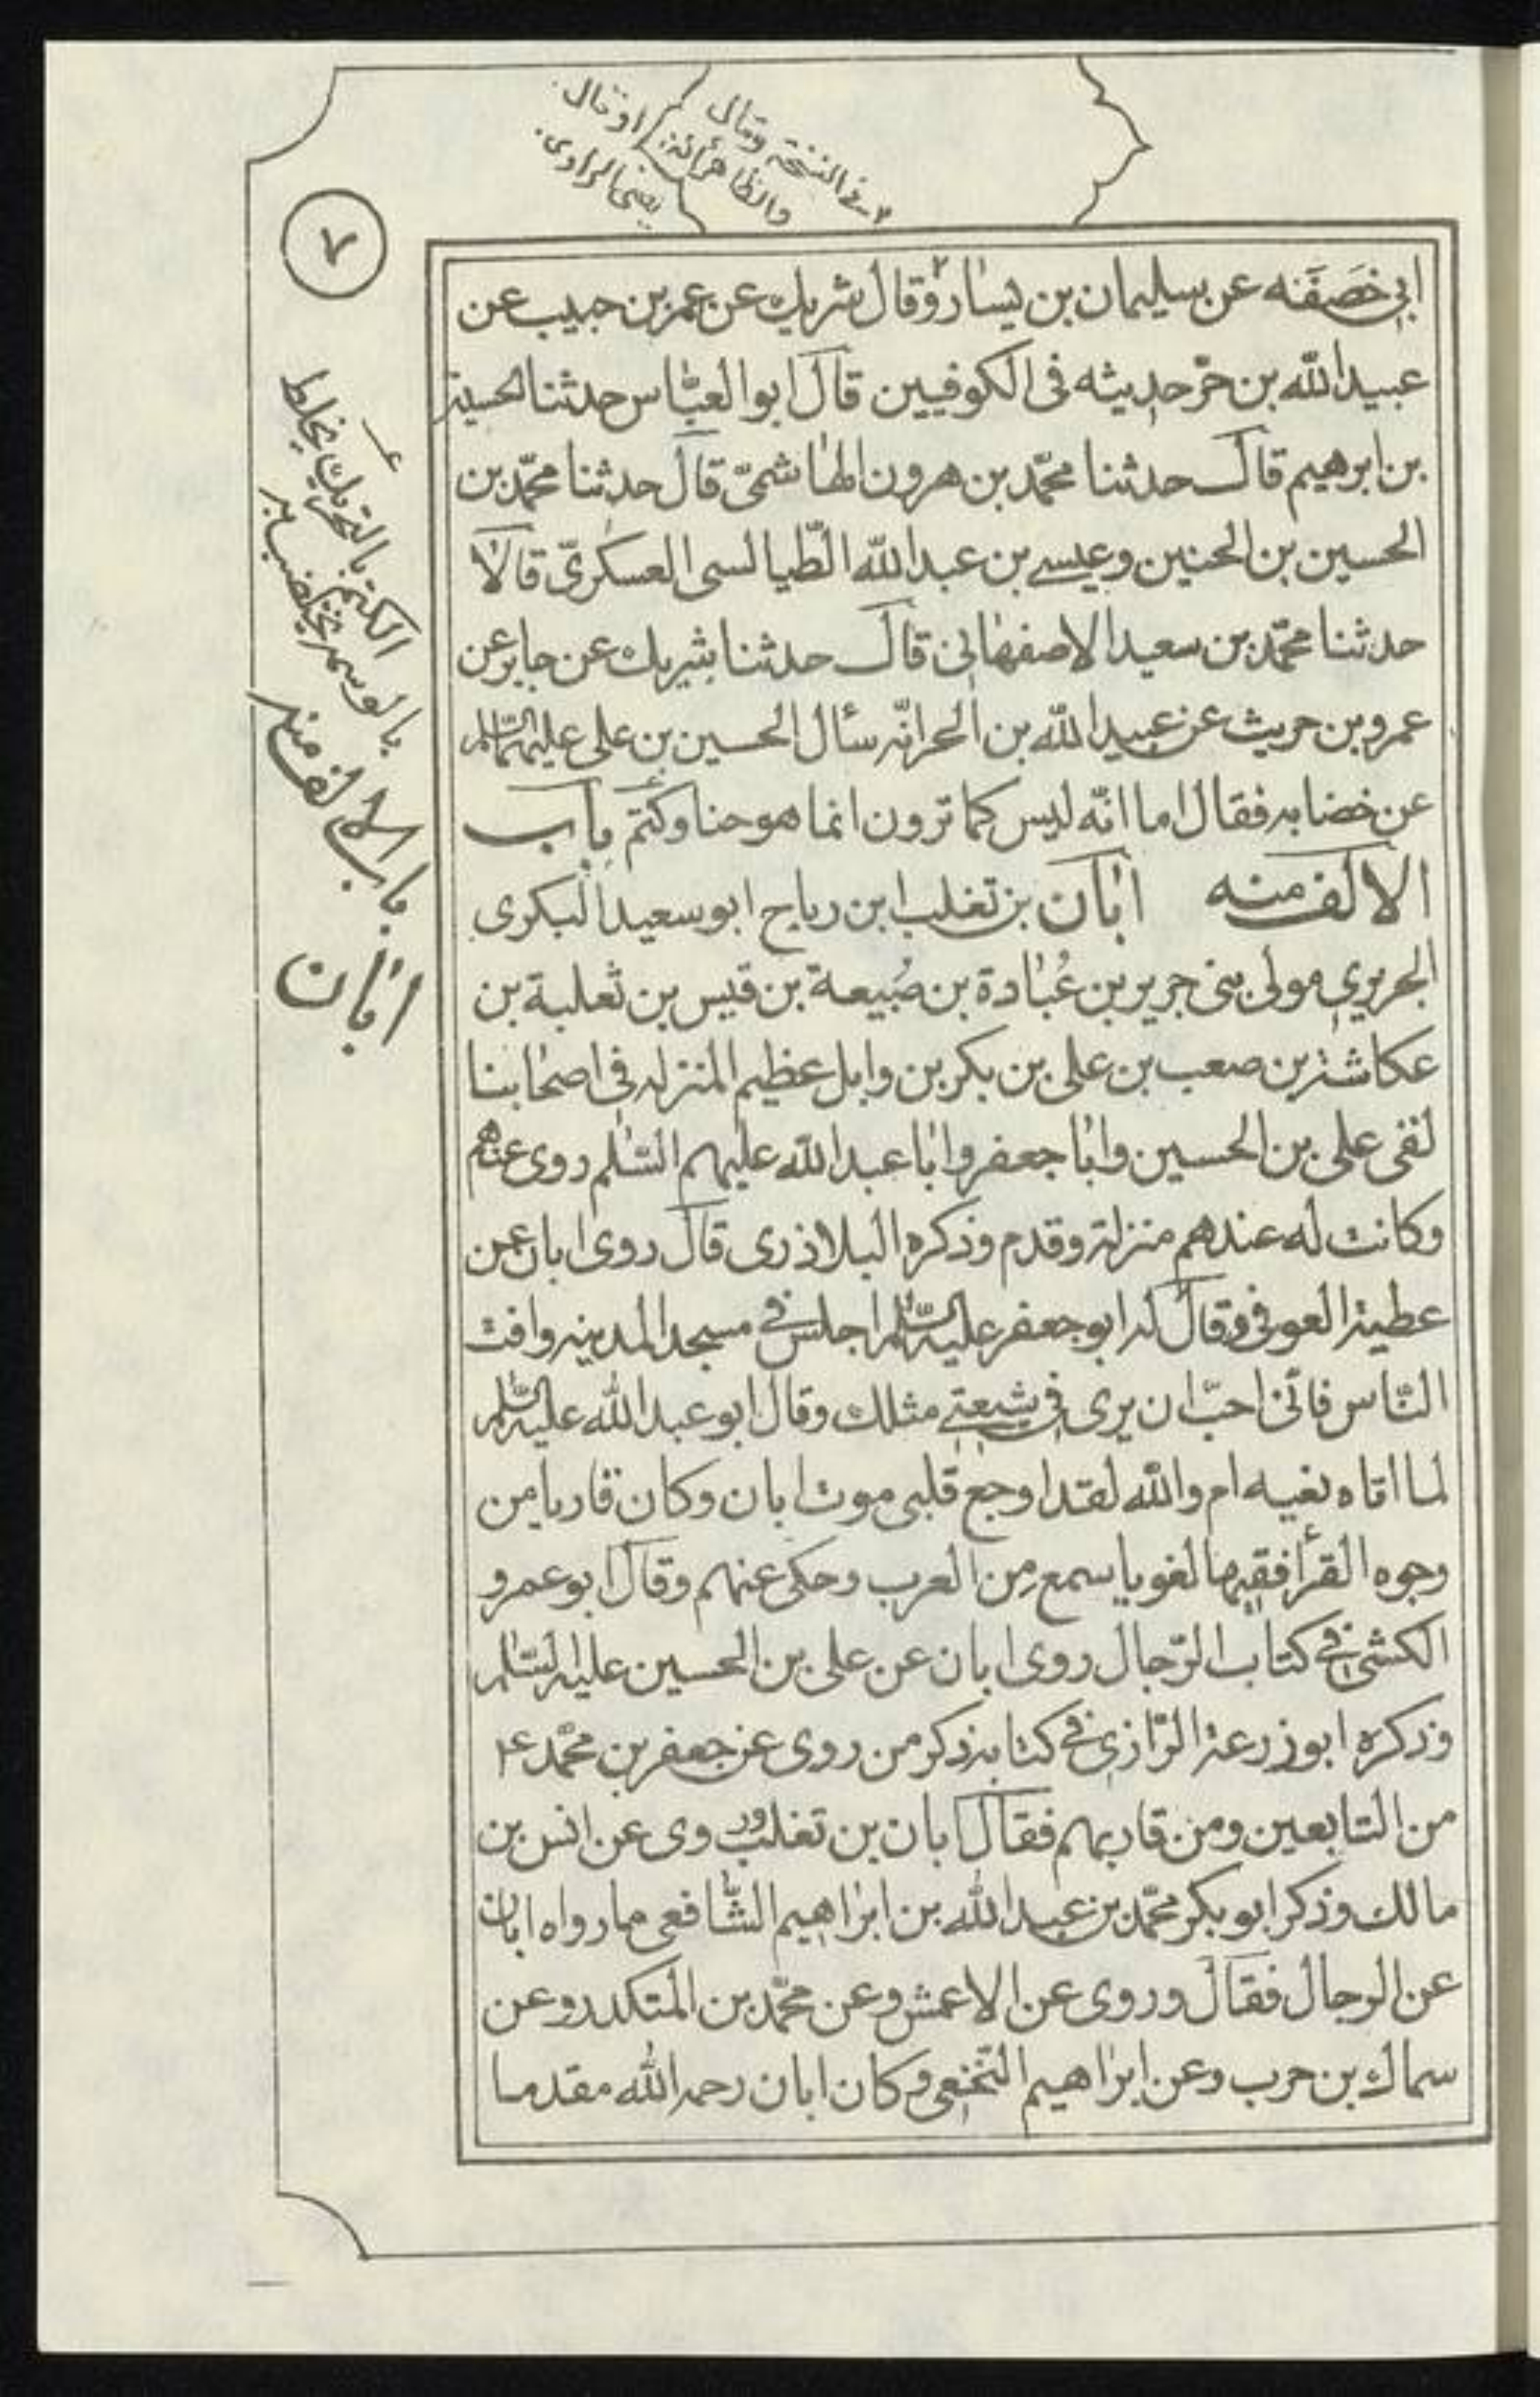 ٢- في النسخة وقال
والظاهر انّه: او قال.
يعني الراوي.
٧
ابي خَصَفَنه عن سليمان بن يسار٢ وقال شريك عن عمر بن حبيب عن
عبيد الله بن حرّ حديثه في الكوفيين قال ابو العبّاس حدثنا الحسين
بن ابرهيم قال حدثنا محمّد بن هرون الهاشميّ قال حدثنا محمّد بن
الحسين بن الحنين وعيسى بن عبد الله الطّيالسى العسكريّ قالا
حدثنا محمّد بن سعيد الاصفهاني قال حدثنا شريك عن جابر عن
عمرو بن حريث عن عبيد الله بن الحر انّه سأل الحسين بن علي عليهما السّلم
عن خضابه فقال اما انّه ليس كما ترون انما هو حنا وكتم باب
الالف منه ابان بن تغلب ابن رباح ابو سعيد البكرى
الجريري مولى بني جرير بن عُبادة بن ضُبيعة بن قيس بن ثعلبة بن
عكاشة بن صعب بن على بن بكر بن وايل عظيم المنزله في اصحابنا
لقى على بن الحسين وابا جعفر وابا عبد الله عليهم السّلم روى عنهم
وكانت له عندهم منزلة وقدم وذكره البلاذرى قال روى ابان عن
عطية العوفي وقال له ابو جعفر عليه السّلم اجلس في مسجد المدينه وافت
النّاس فانّى احبّ ان يرى في شيعتى مثلك وقال ابو عبد الله عليه السّلم
لما اتاه نعيه ام والله لقد اوجع قلبى موت ابان وكان قاريا من
وجوه القرأ فقيها لغويا سمع من العرب وحكى عنهم وقال ابو عمرو
الكشي في كتاب الرّجال روى ابان عن على بن الحسين عليه السّلم
وذكره ابو زرعة الرّازي في كتابه ذكر من روى عن جعفر بن محمّد ع
من التابعين ومن قاربهم فقال ابان بن تغلب روى عن انس بن
مالك وذكر ابو بكر محمّد بن عبد الله بن ابراهيم الشّافعى ما رواه ابان
عن الرجال فقال وروى عن الاعمش وعن محمّد بن المتكدر وعن
سماك بن حرب وعن ابراهيم النّخعى وكان ابان رحمه الله مقدما
الكتم بالتحريك يخلط
بالوسمة يختضب به
باب الالف منه
ابان